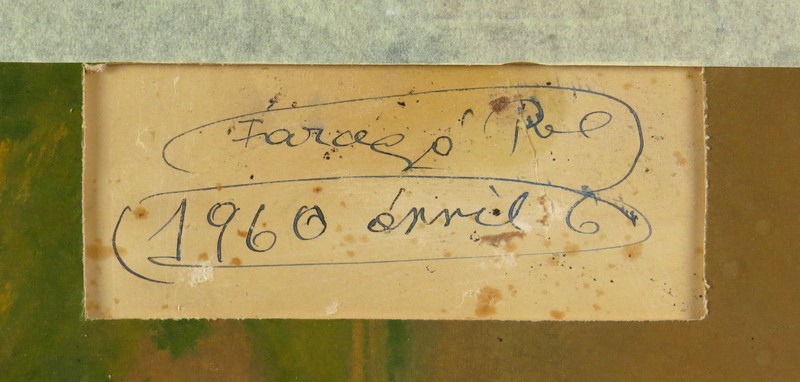 Faragó Pál
1960 ápril 6